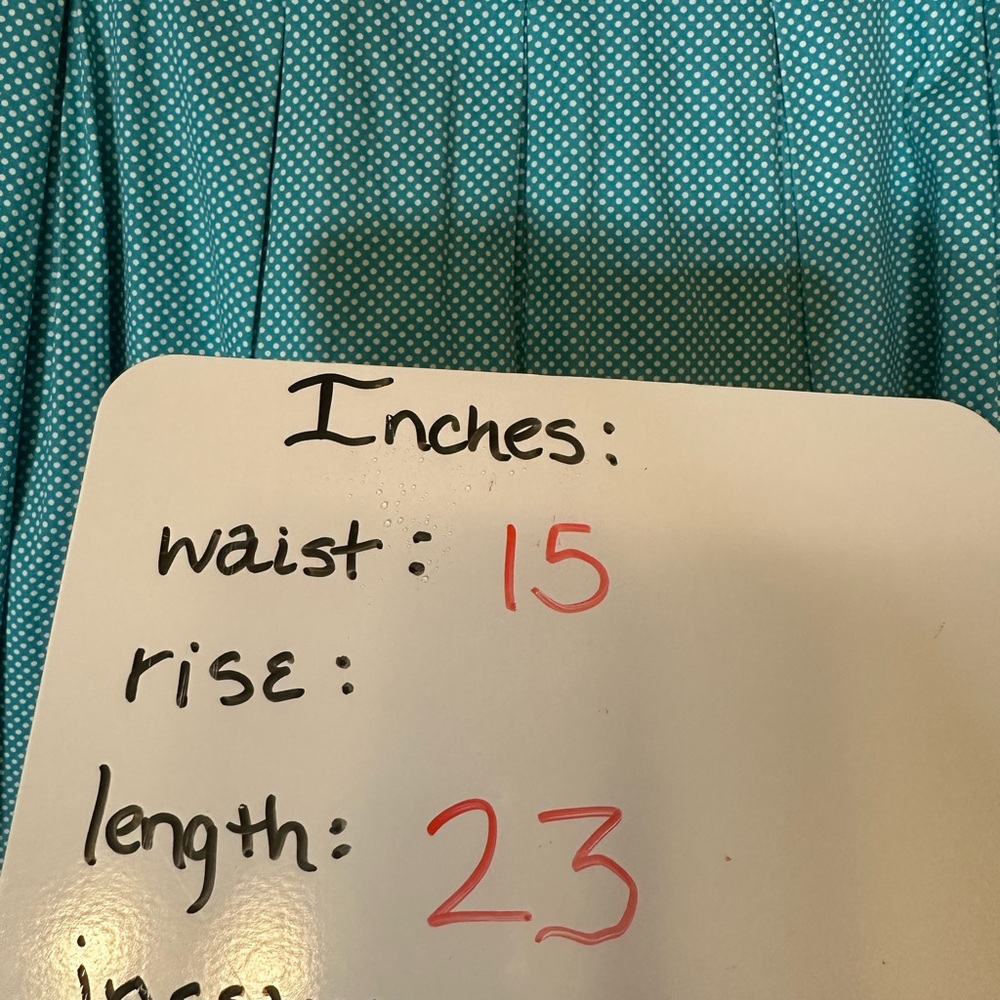 Inches:
waist: 15
rise:
length: 23